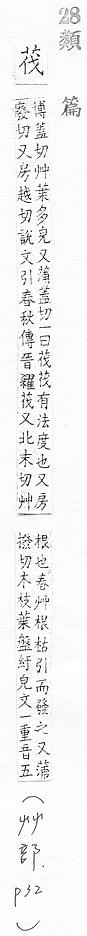 28類篇
茷
博蓋切艸葉多皃又蒲蓋切一曰茷茷有法度也又房
廢切又房越切說文引春秋傳晉糴茷又北末切艸
根也春艸根枯引而發之又蒲
撥切木枝葉盤紆皃文一重音五
(艸部. p32)